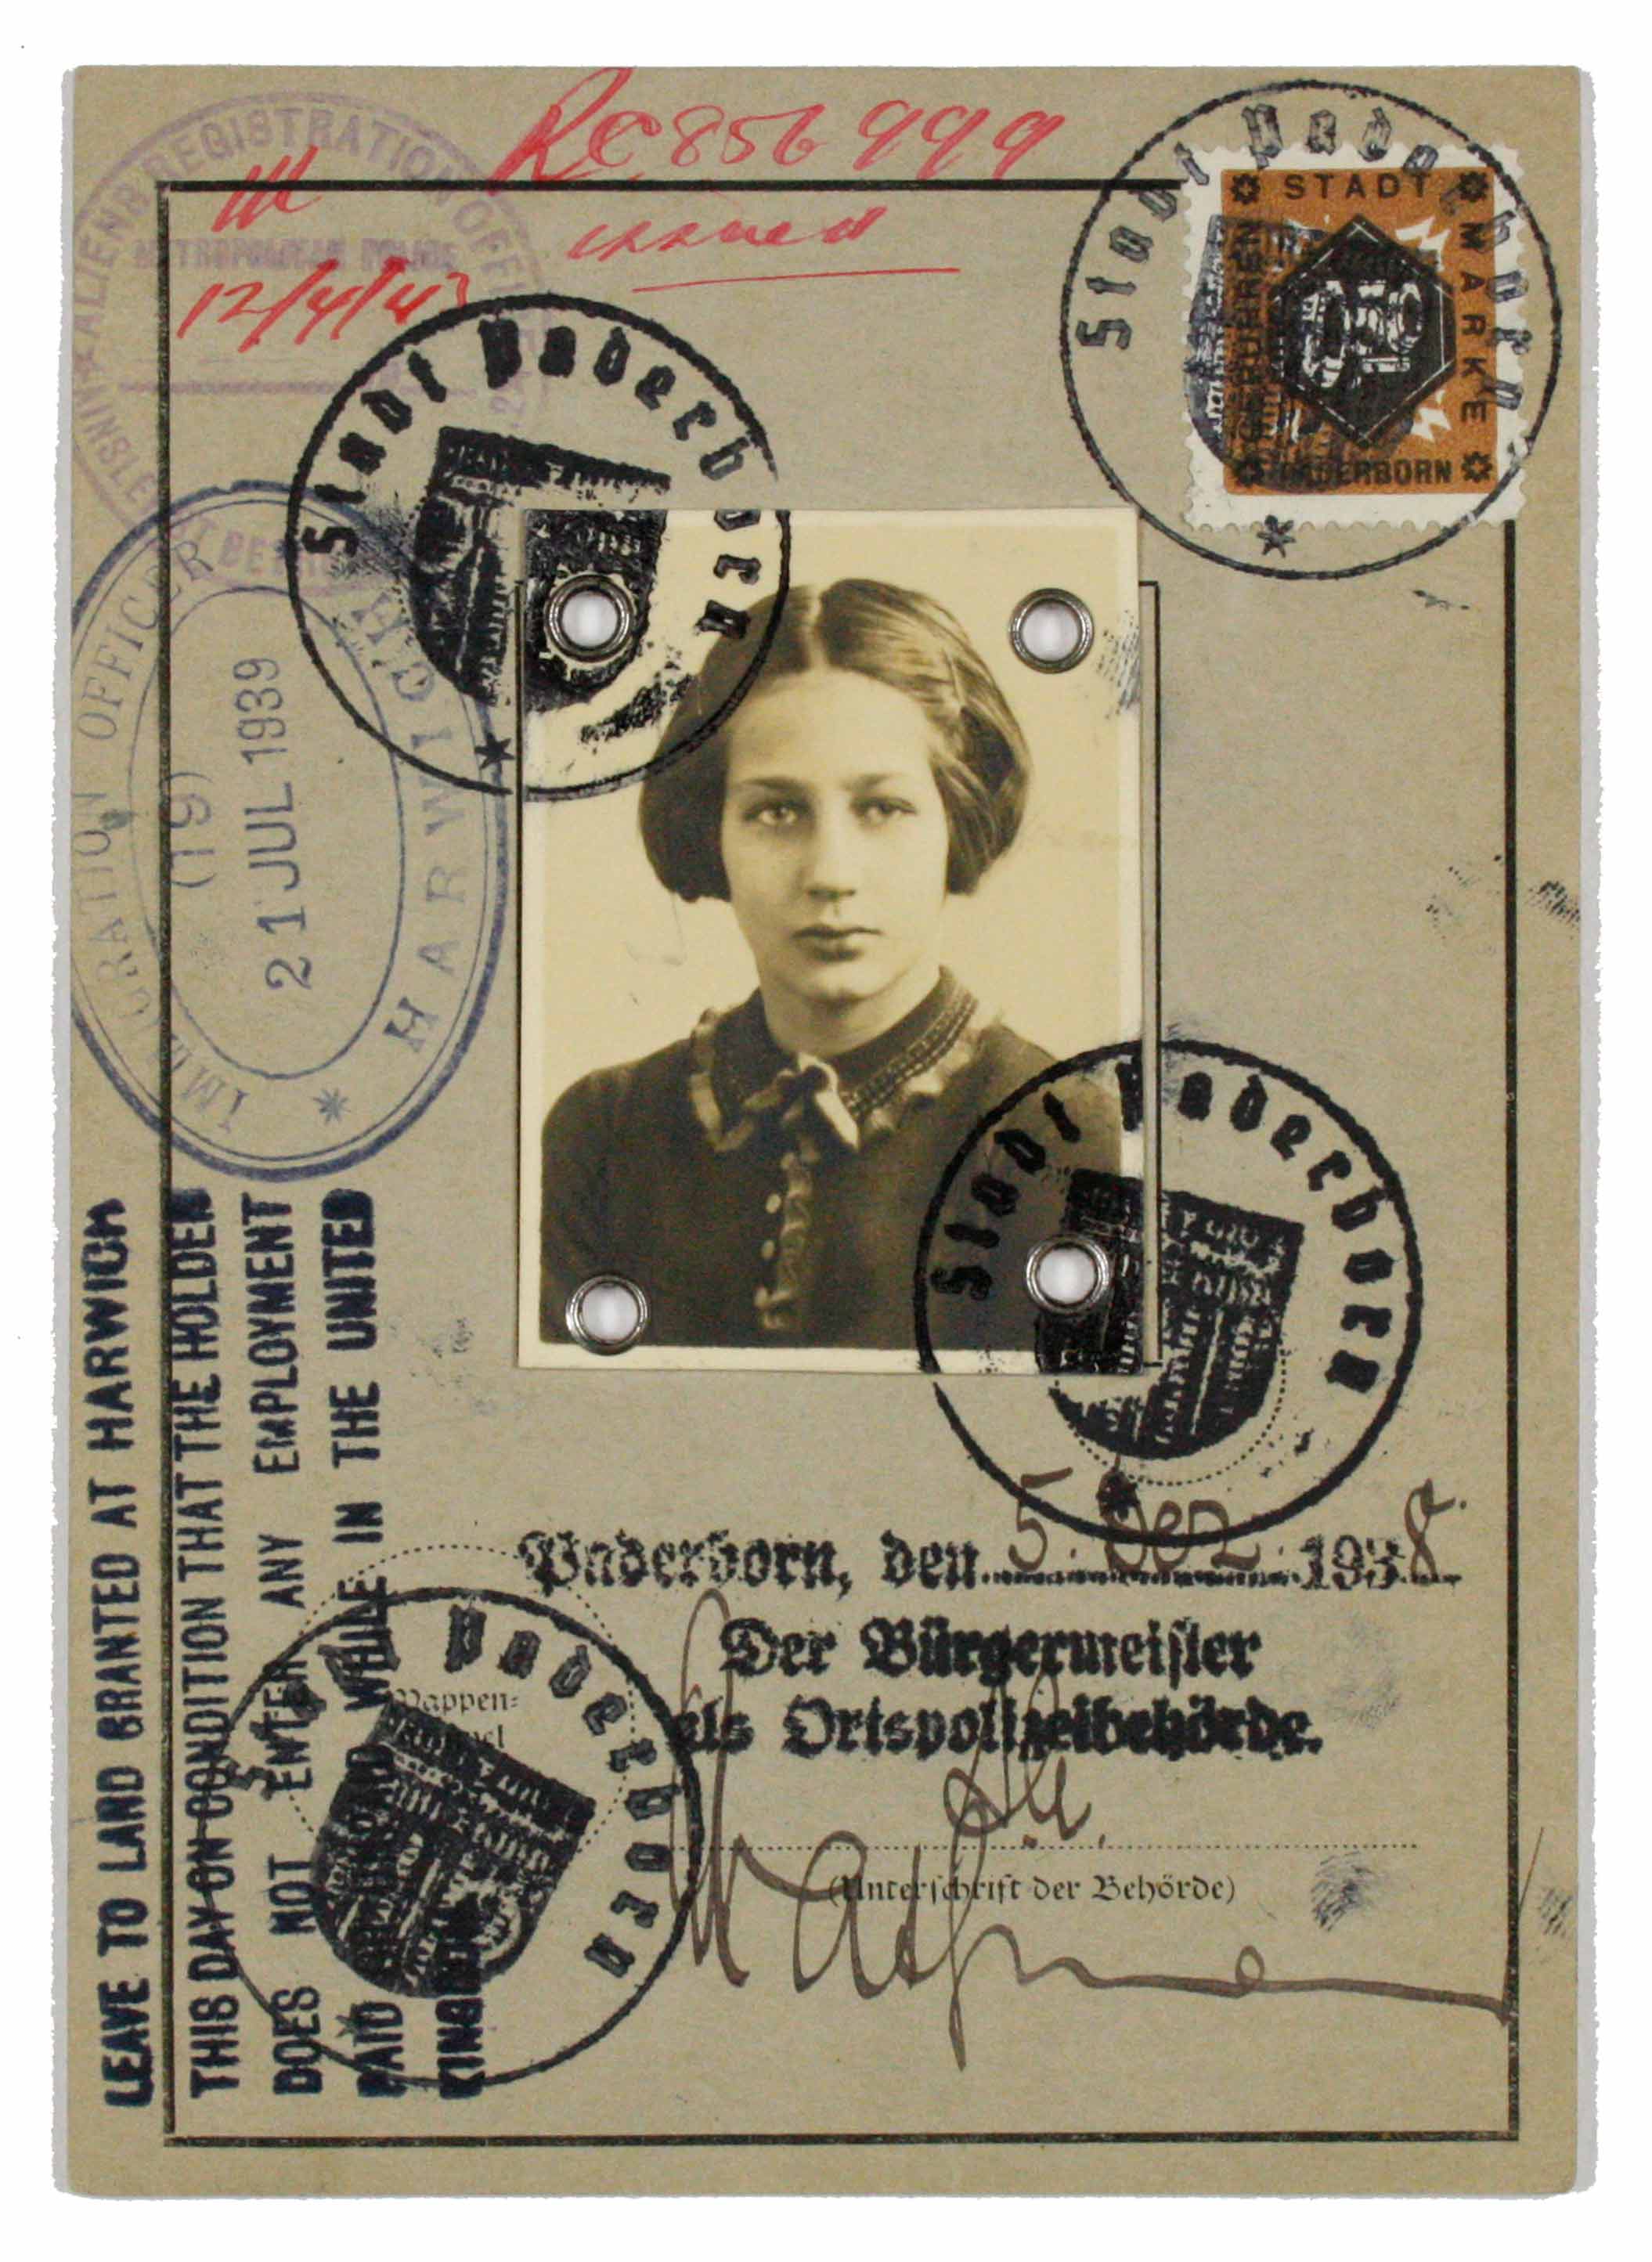 RC 856 999
issued
12/4/43
ALIENS REGISTRATION OFFICE
METROPOLITAN POLICE
Stadt Paderborn
STADT
MARKE
GEBÜHREN
0,50
PADERBORN
Stadt Paderborn
IMMIGRATION OFFICER
(19)
21 JUL 1939
HARWICH
Stadt Paderborn
LEAVE TO LAND GRANTED AT HARWICH
THIS DAY ON CONDITION THAT THE HOLDER
DOES NOT ENTER ANY EMPLOYMENT
PAID OR UNPAID WHILE IN THE UNITED
KINGDOM
Paderborn, den 5. Dez. 1938.
Der Bürgermeister
als Ortspolizeibehörde.
Wappen-
Paderborn
(Unterschrift der Behörde)